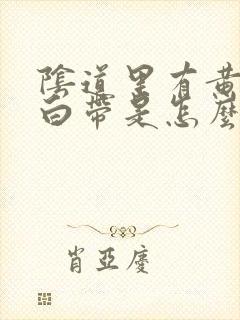 陰道里有黄
白帶是怎麼
肖亞慶